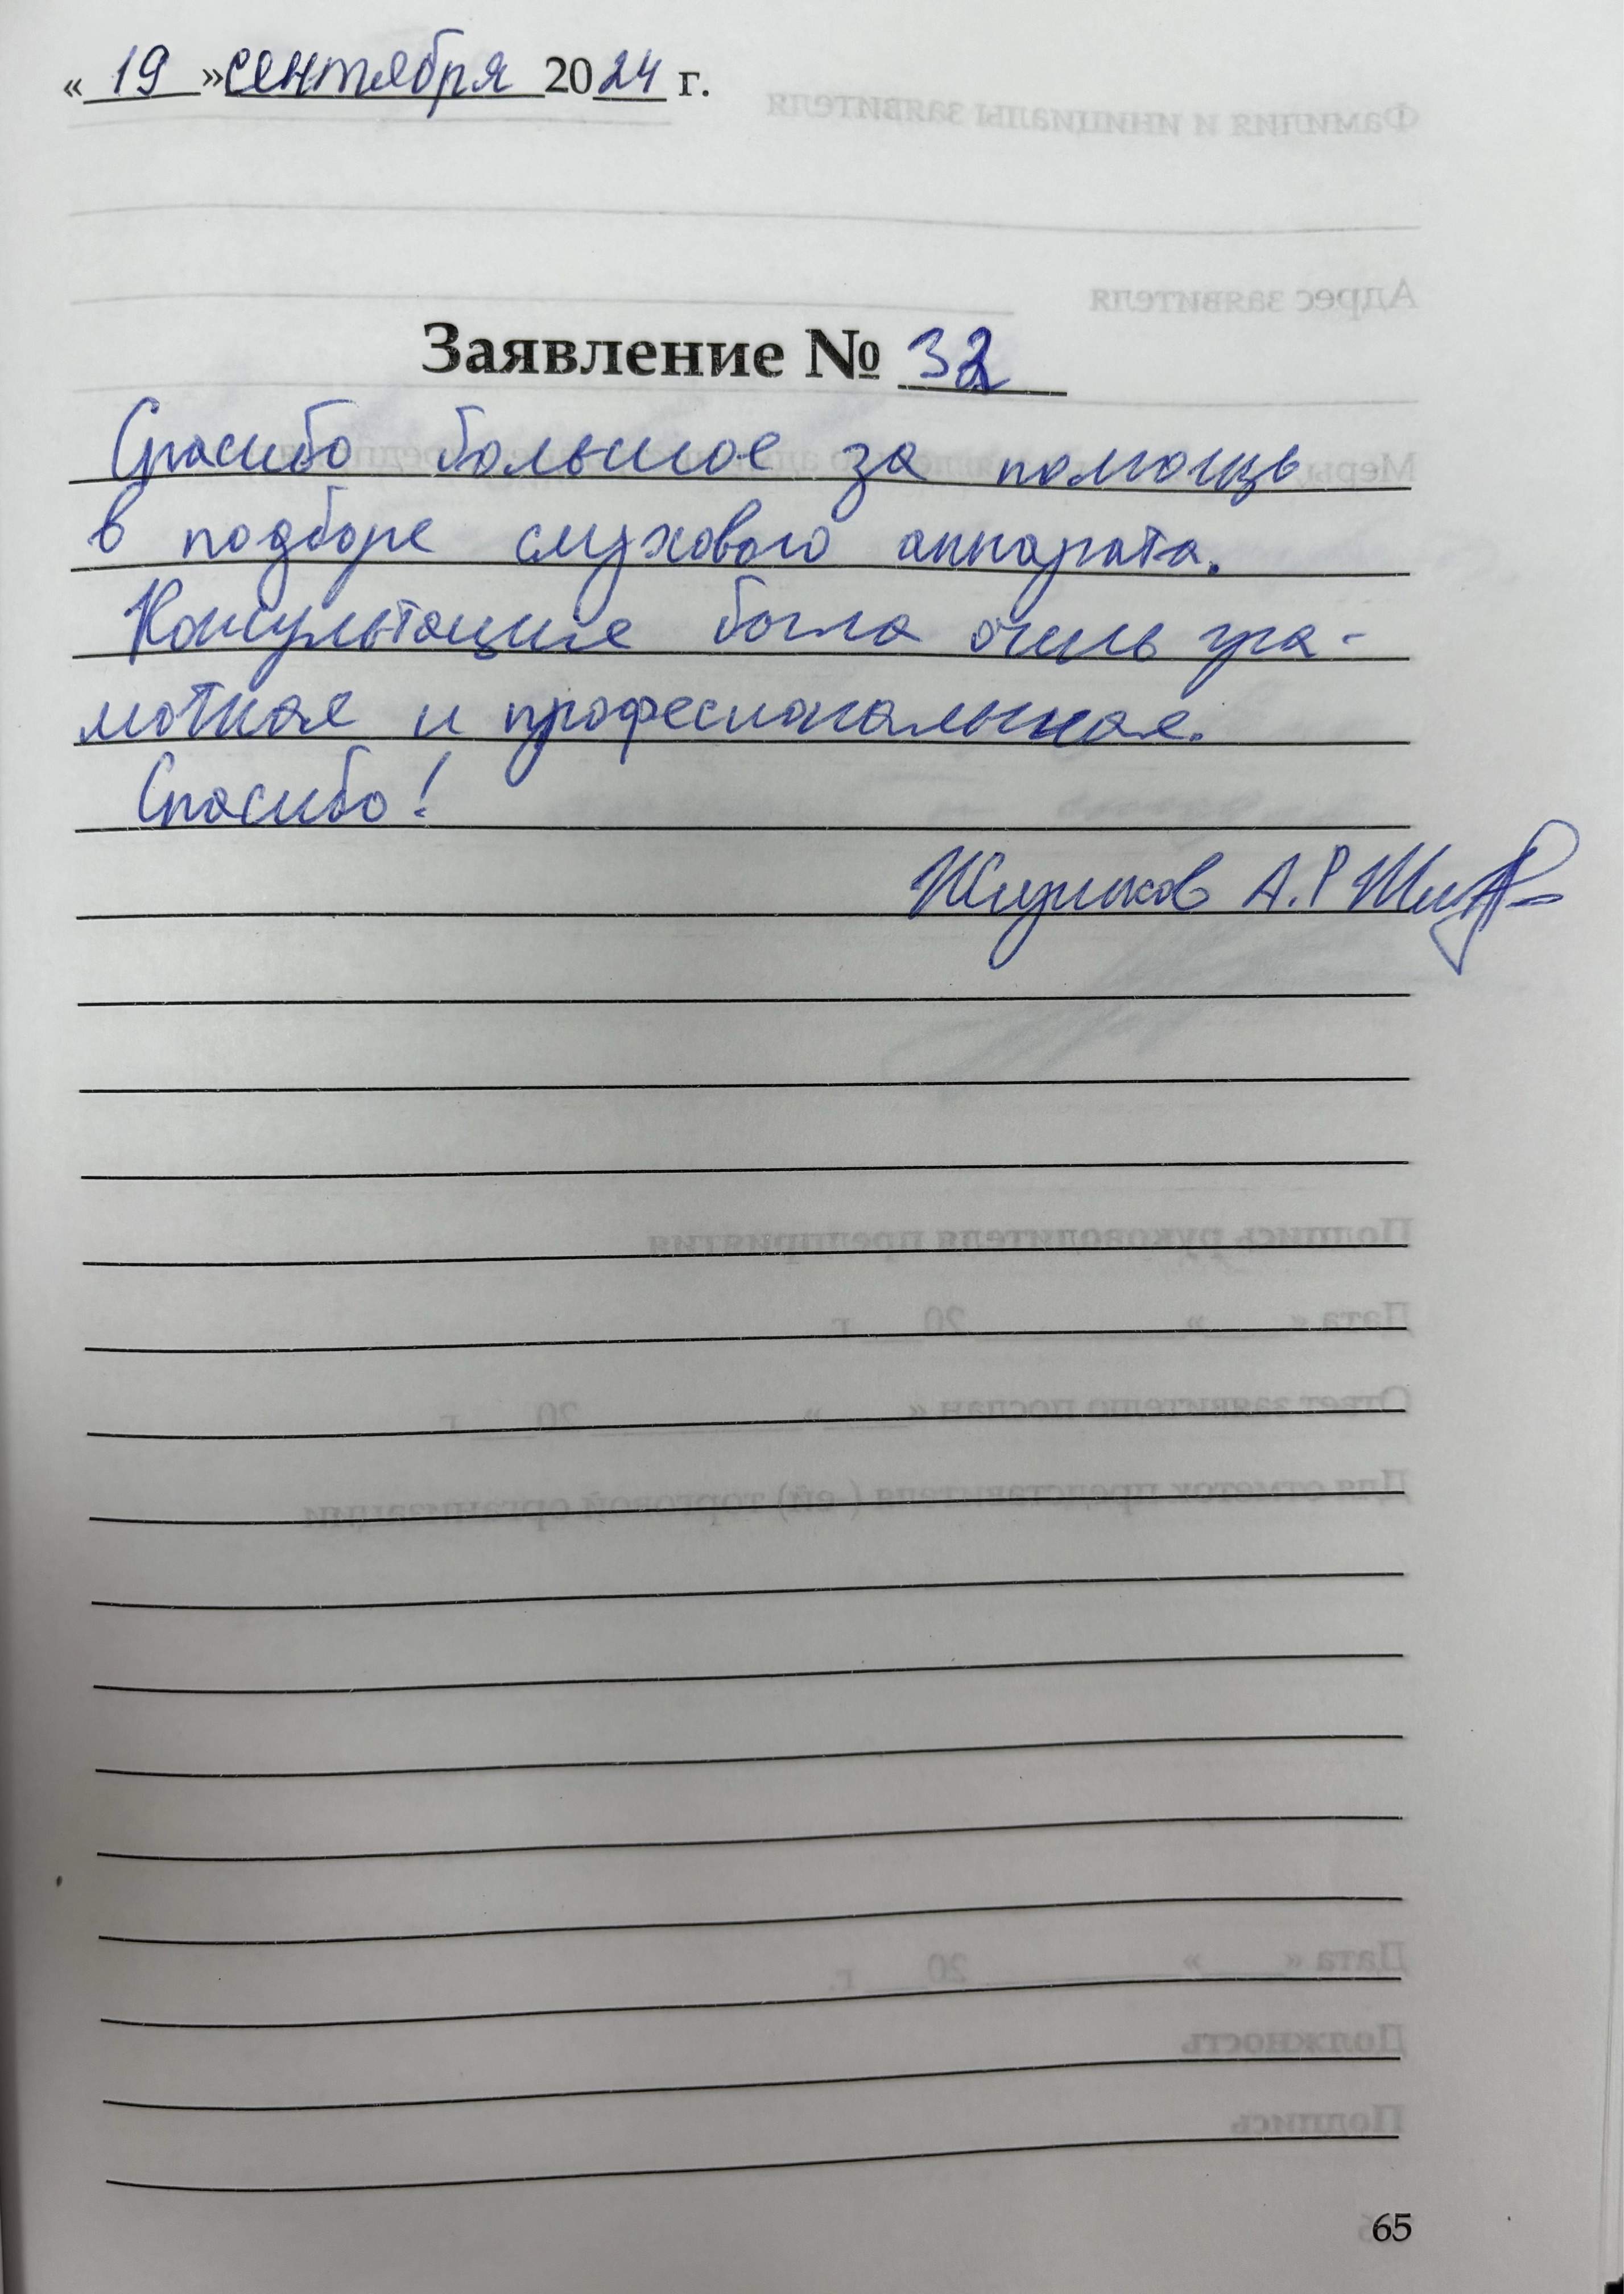 « 19 » сентября 2024 г.
Заявление № 32
Спасибо большое за помощь
в подборе слухового аппарата.
Консультация была очень гра-
мотная и професиональная.
Спасибо!
А.Р
65